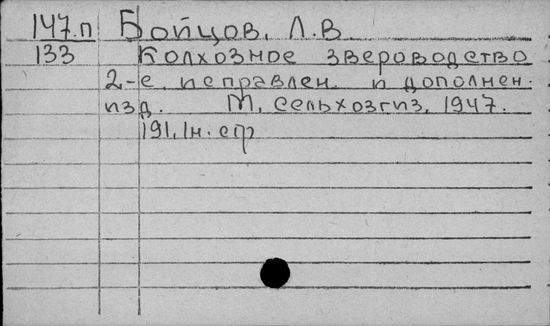 147.п Бойцов, Л.В.
133 Колхозное звероводство
2-е исправлен. и дополнен.
изд. М, сельхозгиз, 1947.
191, 1н. стр